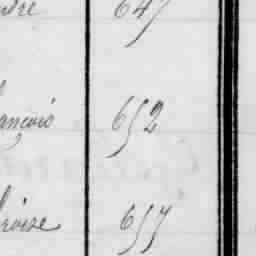 dré 647
ançois 652
roise 657